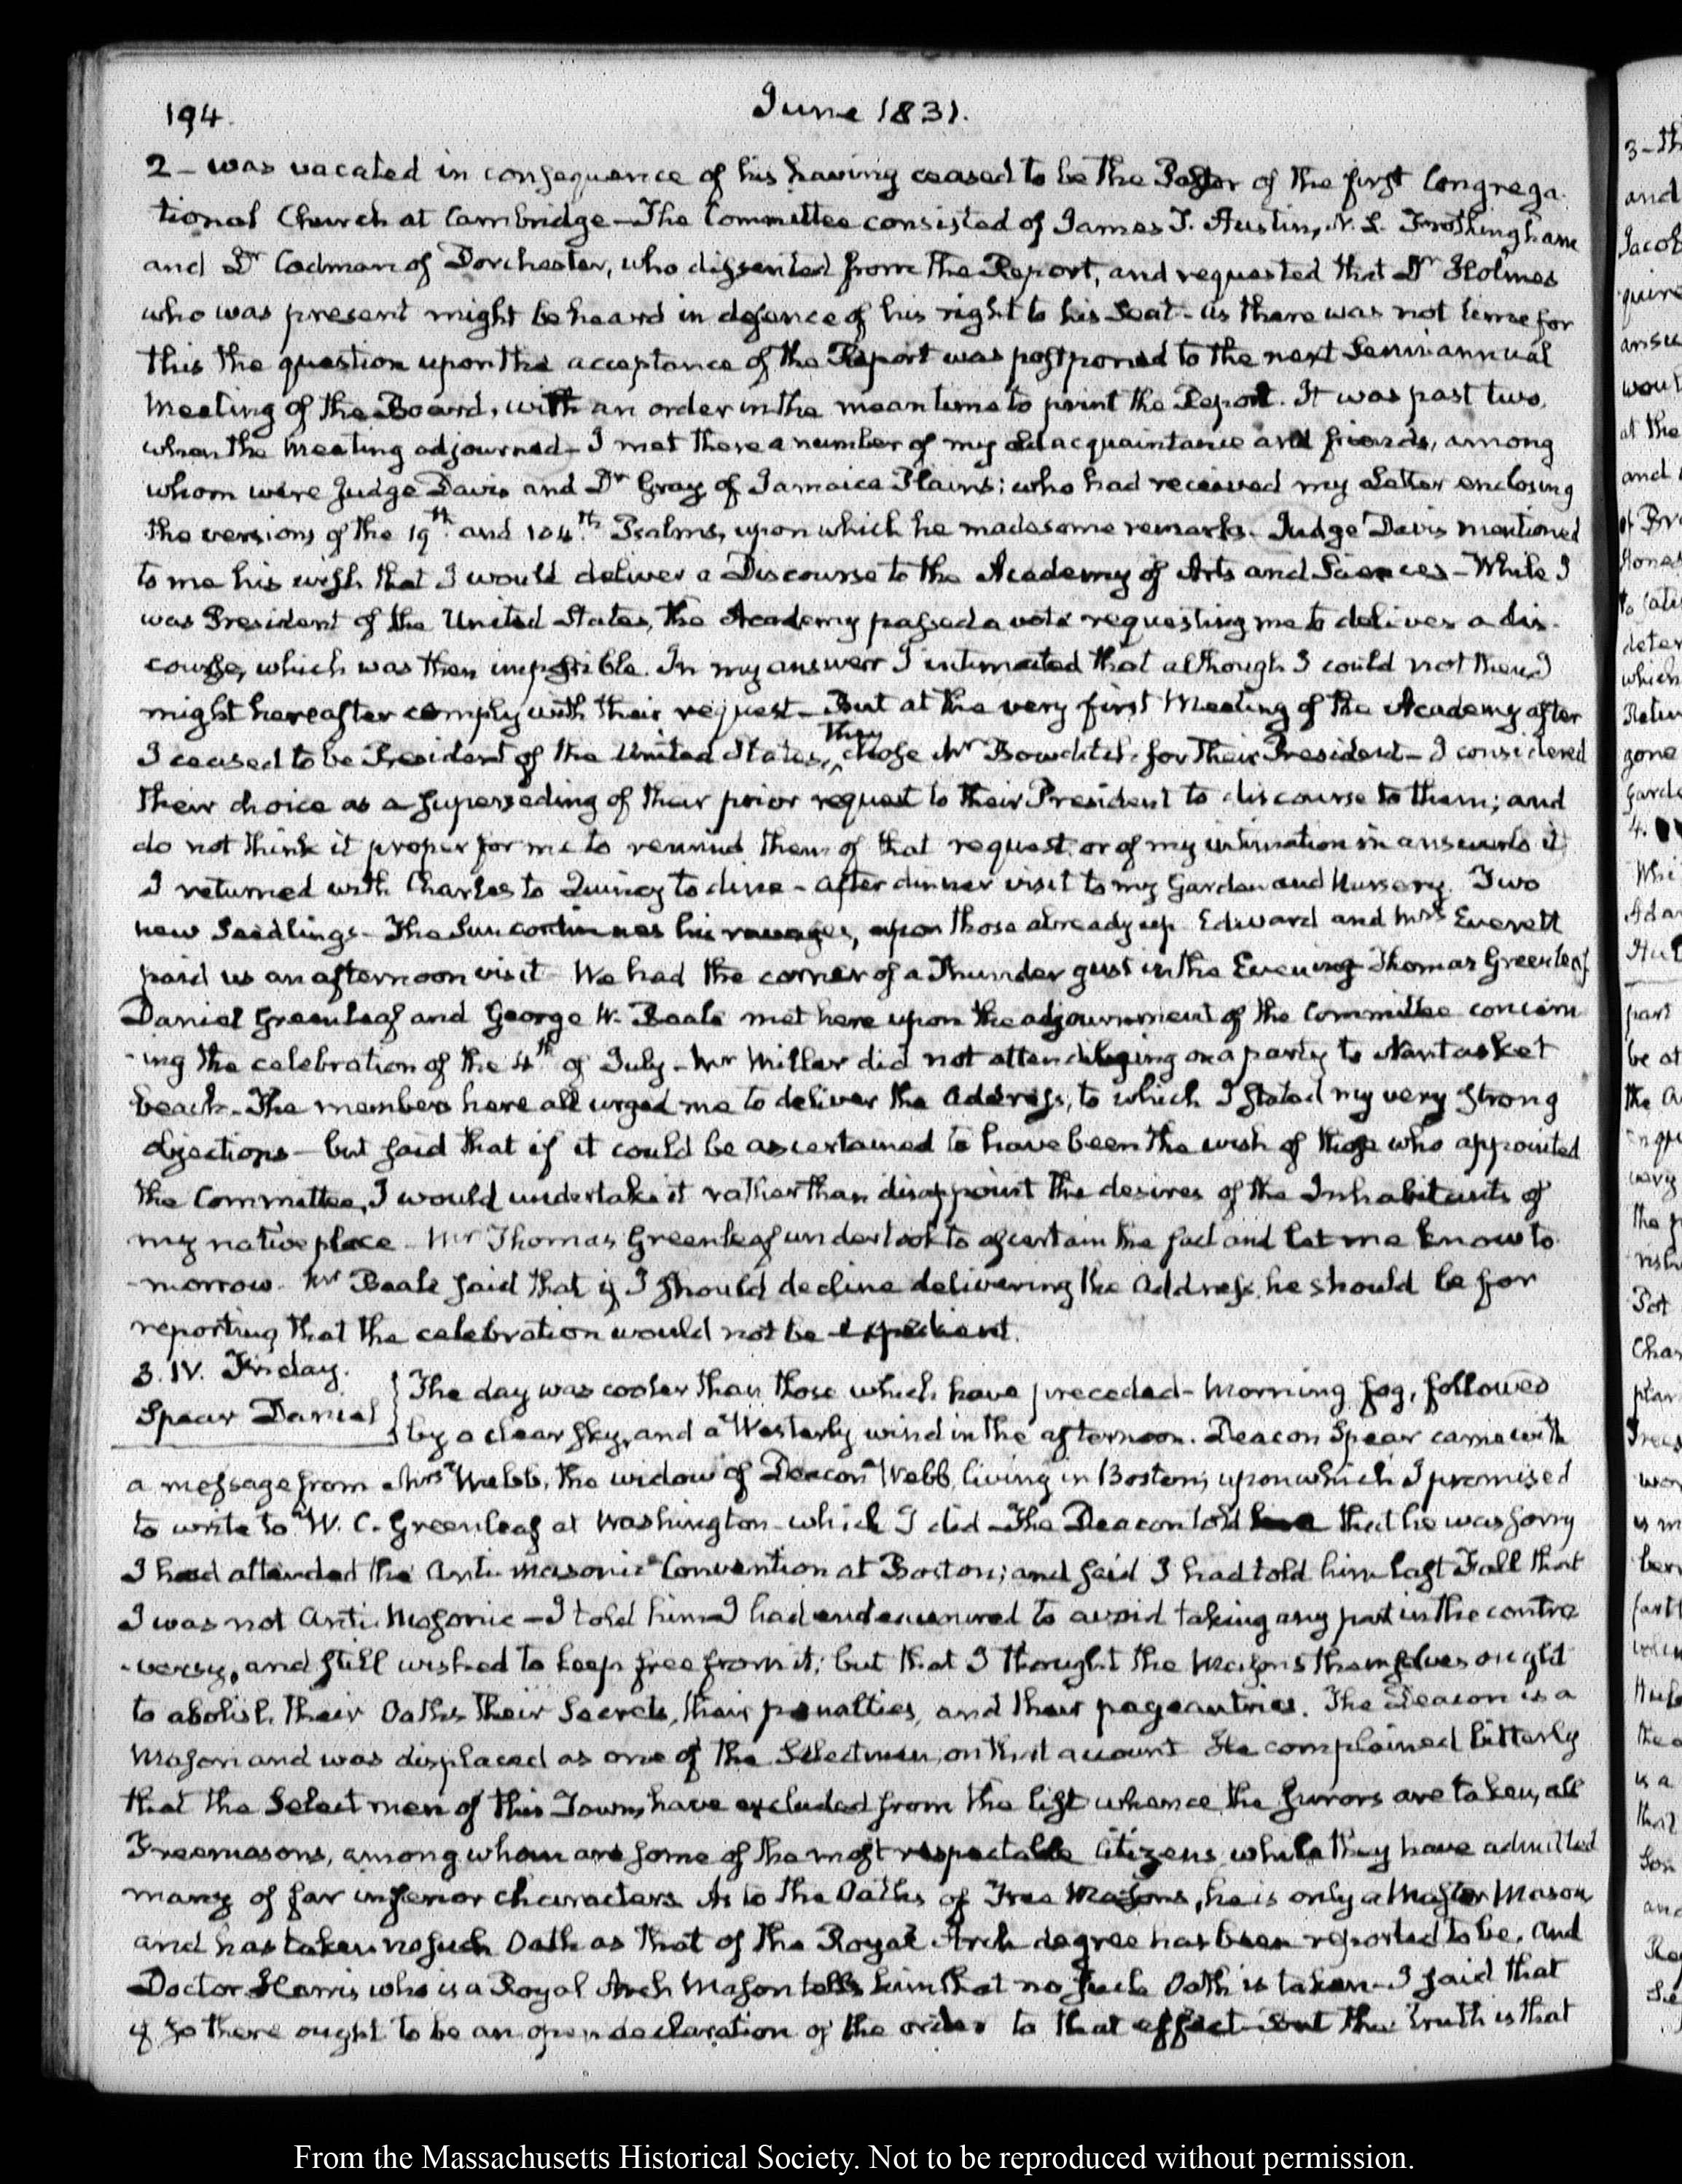 194.
June 1831.
2 – was vacated in consequence of his having ceased to be the Pastor of the first Congrega-
tional Church at Cambridge – The Committee consisted of James T. Austin, N. L. Frothingham
and Dr Codman of Dorchester, who dissented from the Report, and requested that Dr Holmes
who was present might be heard in defence of his right to his Seat – as there was not time for
this the question upon the acceptance of the Report was postponed to the next Semi annual
Meeting of the Board, with an order in the mean time to print the Report. It was past two,
when the Meeting adjourned – I met there a number of my old acquaintance and friends, among
whom were Judge Davis and Dr Gray of Jamaica Plains; who had received my Letter enclosing
the versions of the 19th and 104th Psalms, upon which he made some remarks. Judge Davis mentioned
to me his wish that I would deliver a Discourse to the Academy of Arts and Sciences – While I
was President of the United States, the Academy passed a vote requesting me to deliver a dis-
course, which was then impossible. In my answer I intimated that although I could not then I
might hereafter comply with their request – But at the very first Meeting of the Academy after
I ceased to be President of the United States, they chose Mr Bowditch for their President – I considered
their choice as a superseding of their prior request to their President to discourse to them; and
do not think it proper for me to remind them of that request or of my intimation in answer to it
I returned with Charles to Quincy to dine – after dinner visit to my Garden and Nursery. Two
new Seedlings – The Sun continues his ravages, upon those already up. Edward and Mrs Everett
paid us an afternoon visit – We had the corner of a Thunder gust in the Evening Thomas Greenleaf
Daniel Greenleaf and George W. Beale met here upon the adjournment of the Committee concern
-ing the celebration of the 4th of July – Mr Miller did not attend being on a party to Nantasket
beach – The members here all urged me to deliver the Address, to which I stated my very strong
objections – but said that if it could be ascertained to have been the wish of those who appointed
the Committee, I would undertake it rather than disappoint the desires of the Inhabitants of
my native place – Mr Thomas Greenleaf undertook to ascertain the fact and let me know to
-morrow. Mr Beale said that if I should decline delivering the Address, he should be for
reporting that the celebration would not be expedient.
3. IV. Friday.
Spear Daniel
The day was cooler than those which have preceded – Morning fog, followed
by a clear sky, and a Westerly wind in the afternoon. Deacon Spear came with
a message from Mrs Webb, the widow of Deacon Webb, living in Boston, upon which I promised
to write to W. C. Greenleaf at Washington – which I did – The Deacon told that he was sorry
I had attended the Anti-masonic Convention at Boston; and said I had told him last Fall that
I was not Anti-Masonic – I told him I had endeavoured to avoid taking any part in the contro
-versy, and still wished to keep free from it; but that I thought the Masons themselves ought
to abolish their Oaths their Secrets, their penalties, and their pageantries. The Deacon is a
Mason and was displaced as one of the Selectmen, on that account He complained bitterly
that the Select men of this Town, have excluded from the list whence the Jurors are taken, all
Freemasons, among whom are some of the most respectable Citizens while they have admitted
many of far inferior characters As to the Oaths of Free Masons, he is only a Master Mason
and has taken no such Oath as that of the Royal Arch degree has been reported to be. And
Doctor Harris who is a Royal Arch Mason tells him that no such Oath is taken – I said that
if so there ought to be an open declaration of the order to that effect – But the truth is that
From the Massachusetts Historical Society. Not to be reproduced without permission.